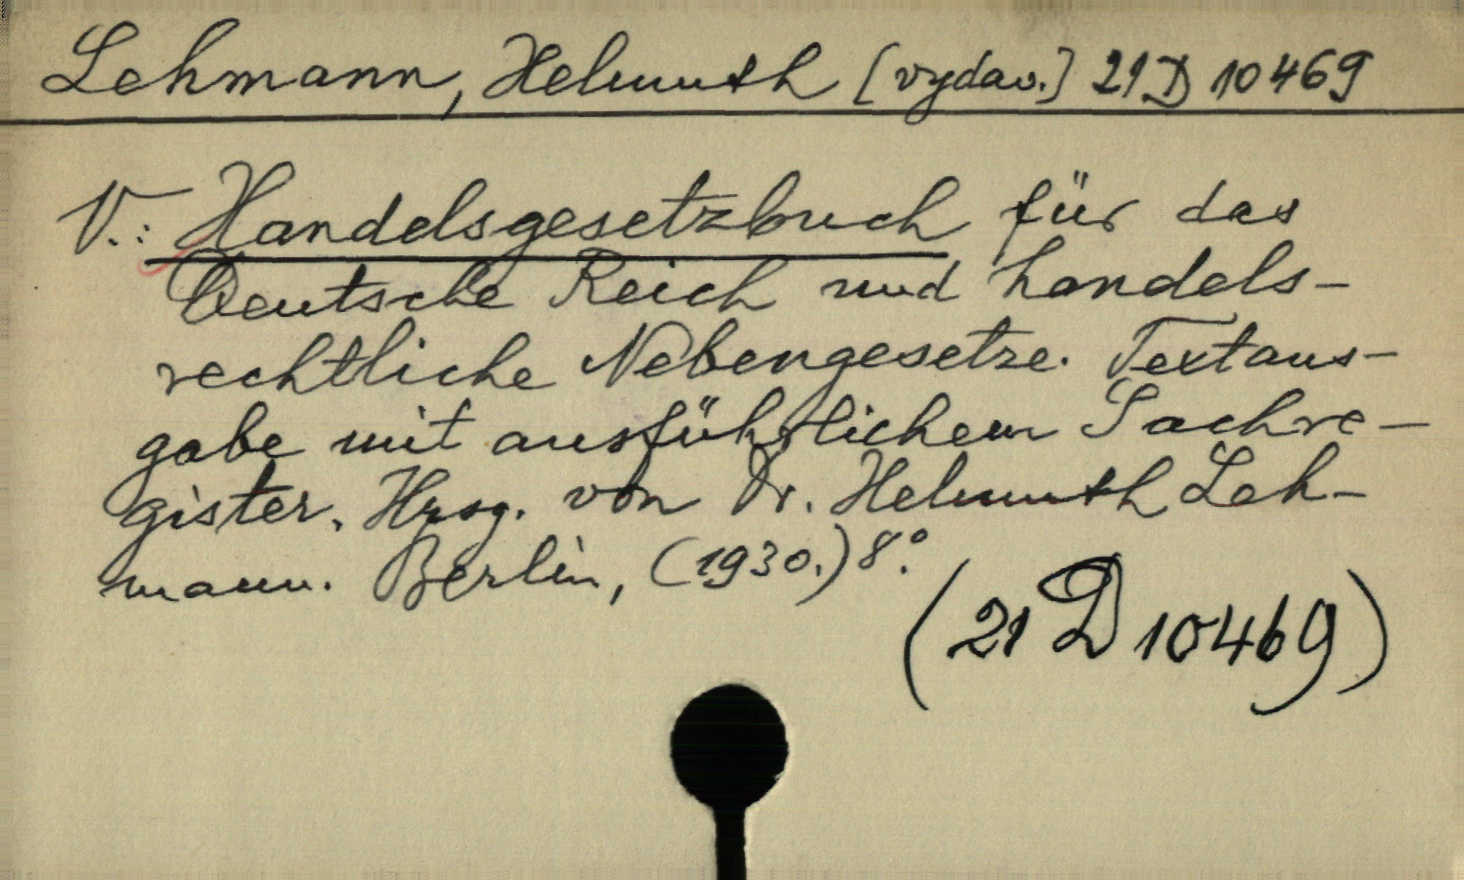 Lehmann, Helmuth [vydav.] 21 D 10469
V.: Handelsgesetzbuch für das
Deutsche Reich und handels-
rechtliche Nebengesetze. Textaus-
gabe mit ausführlichem Sachre-
gister. Hrsg. von Dr. Helmuth Leh-
mann. Berlin, (1930.) 8°.
(21 D 10469)